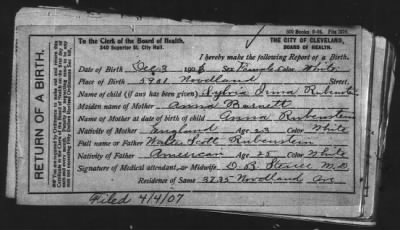 500 Books 8-04.
To the Clerk of the Board of Health.
240 Superior St. City Hall.
THE CITY OF CLEVELAND,
BOARD OF HEALTH.
RETURN OF A BIRTH.
I hereby make the following Report of a Birth.
Date of Birth Dec 3 190 Sex Female Color White
Place of Birth 5901 Woodland Street.
Name of child (if any has been given) Sylvia Irma Rubenstein
Maiden name of Mother Anna Barnett
Name of Mother at date of birth of child Anna Rubenstein
Nativity of Mother England Age 23 Color White
Full name of Father Walter Scott Rubenstein
Nativity of Father American Age 25 Color White
Signature of Medical attendant, or Midwife D. B. M.D
Residence of Same 3735 Woodland Ave
Filed 4/4/07